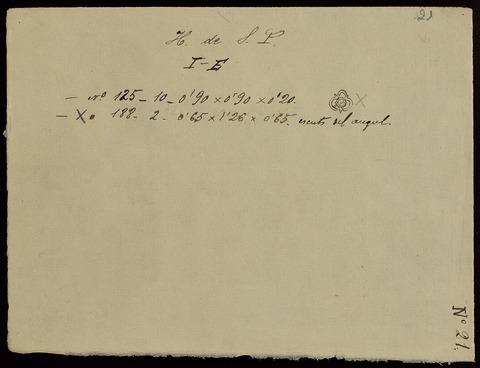 21
H. de S. P.
I-E
— Nº 125 - 10 - 0'90 x 0'90 x 0'20. X
— X " 188 - 2. 0'65 x 1'26 x 0'65. escuts del angul.
Nº 21.